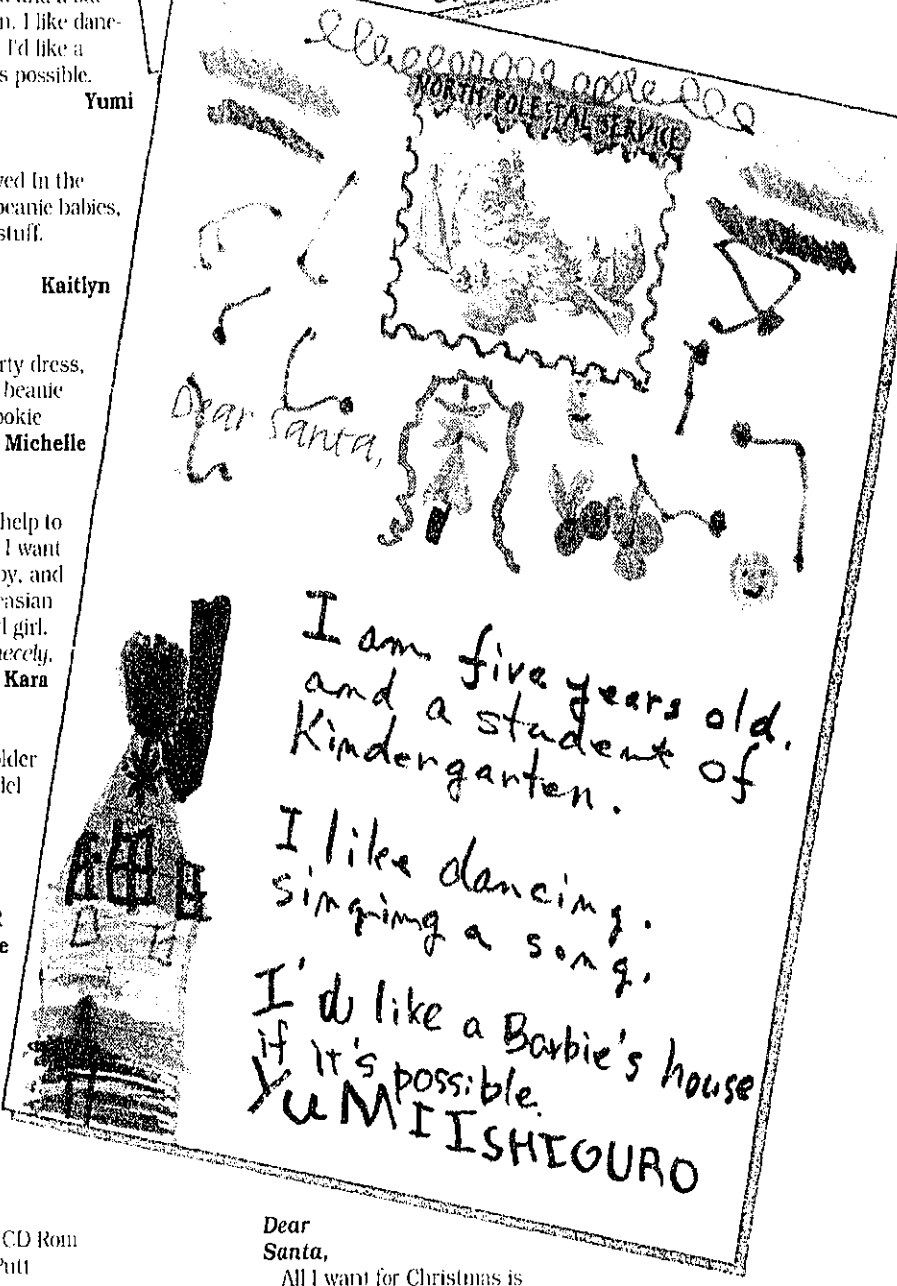 n. I like danc-
I'd like a
s possible.
Yumi
ved In the
beanie babies,
stuff.
Kaitlyn
rty dress,
beanie
ookie
Michelle
help to
I want
by, and
easian
rl girl.
necely,
Kara
older
del
NORTH POLESTAL SERVICE
Dear Santa,
I am five years old.
and a student of
Kindergarten.
I like dancing.
singing a song.
I'd like a Barbie's house
if it's possible.
YuMI ISHIGURO
CD Rom
Putt
Dear
Santa,
All I want for Christmas is